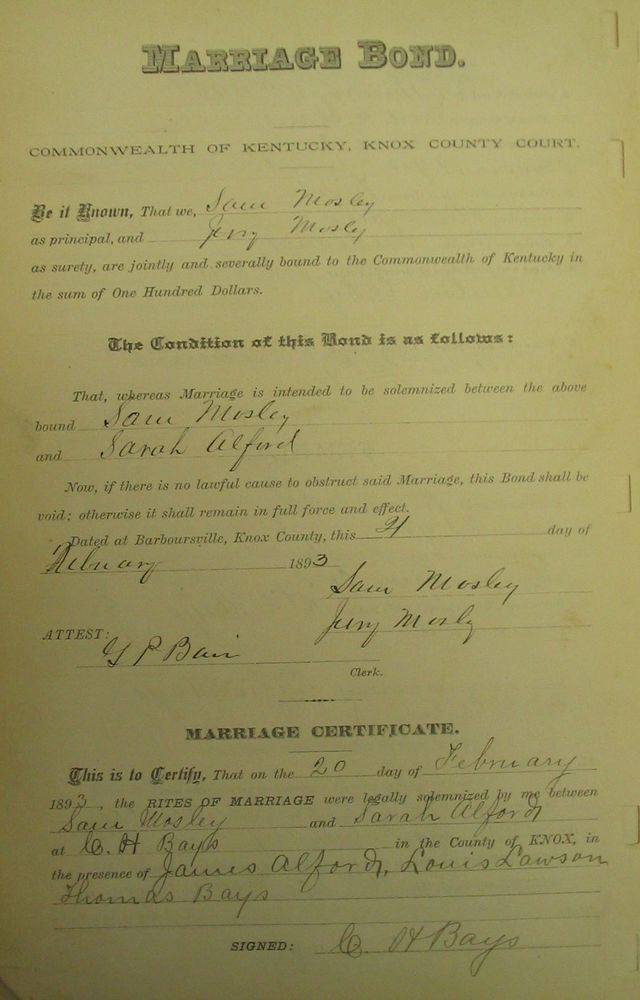 MARRIAGE BOND.
COMMONWEALTH OF KENTUCKY, KNOX COUNTY COURT.
Be it Known, That we, Sam Mosley
as principal, and Jerry Mosly
as surety, are jointly and severally bound to the Commonwealth of Kentucky in
the sum of One Hundred Dollars.
The Condition of this Bond is as follows:
That, whereas Marriage is intended to be solemnized between the above
bound Sam Mosley
and Sarah Alford
Now, if there is no lawful cause to obstruct said Marriage, this Bond shall be
void; otherwise it shall remain in full force and effect.
Dated at Barboursville, Knox County, this day of
February 1893
Sam Mosley
Jerry Mosly
ATTEST:
G P Bain
Clerk.
MARRIAGE CERTIFICATE.
This is to Certify, That on the 20 day of February
1893, the RITES OF MARRIAGE were legally solemnized by me between
Sam Mosley and Sarah Alford
at C. H Bays in the County of KNOX, in
the presence of James Alford, Louis Lawson
Thomas Bays
SIGNED: C. H Bays